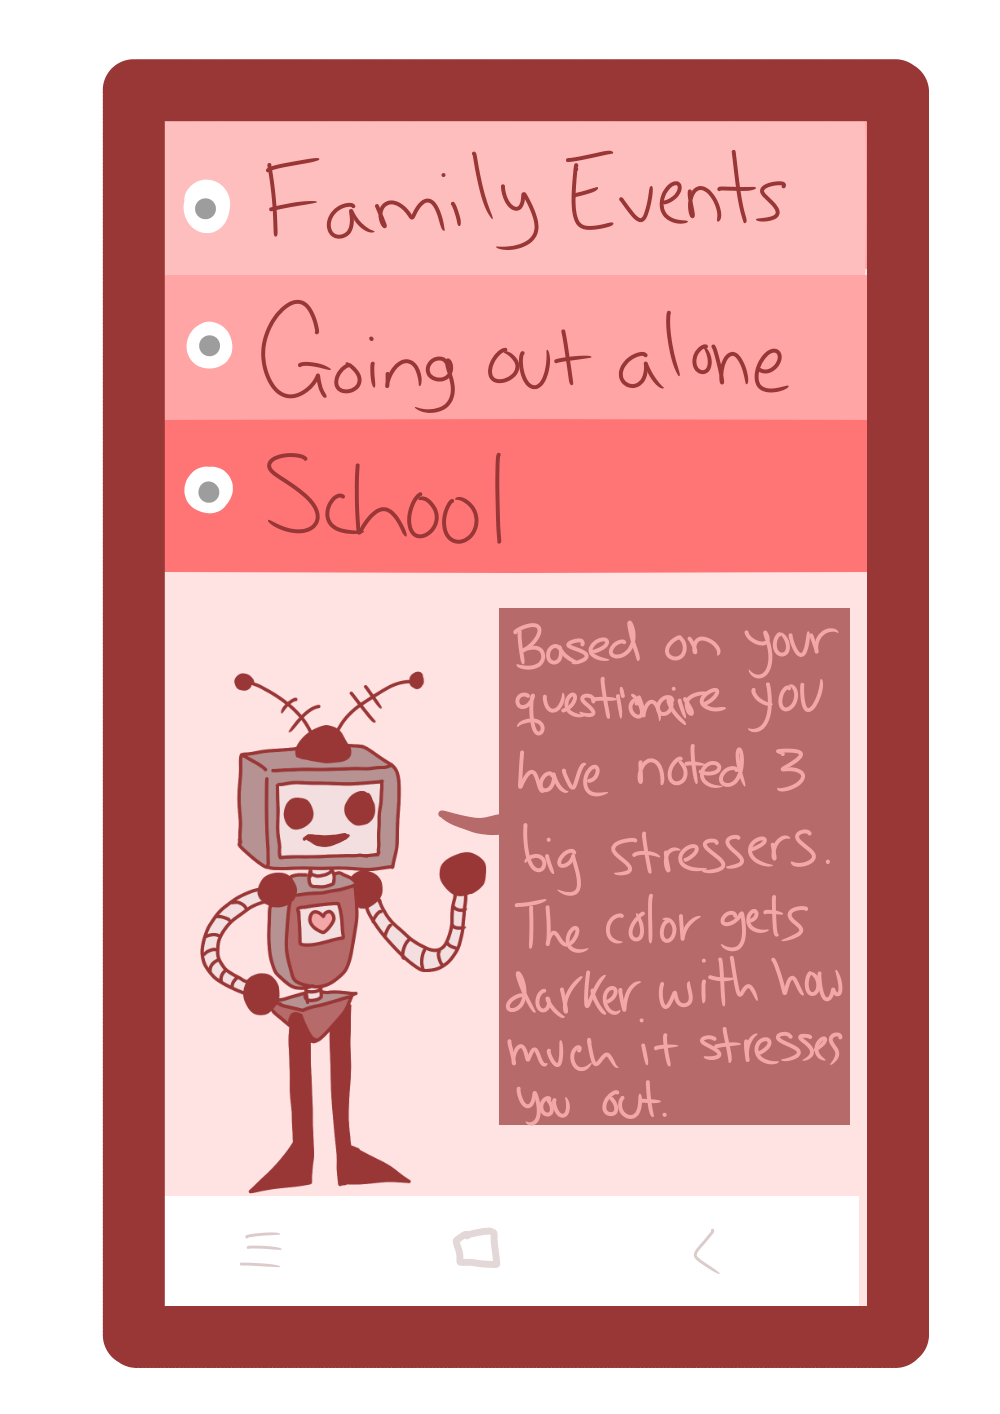 Family Events
Going out alone
School
Based on your
questionaire you
have noted 3
big stressers.
The color gets
darker with how
much it stresses
you out.